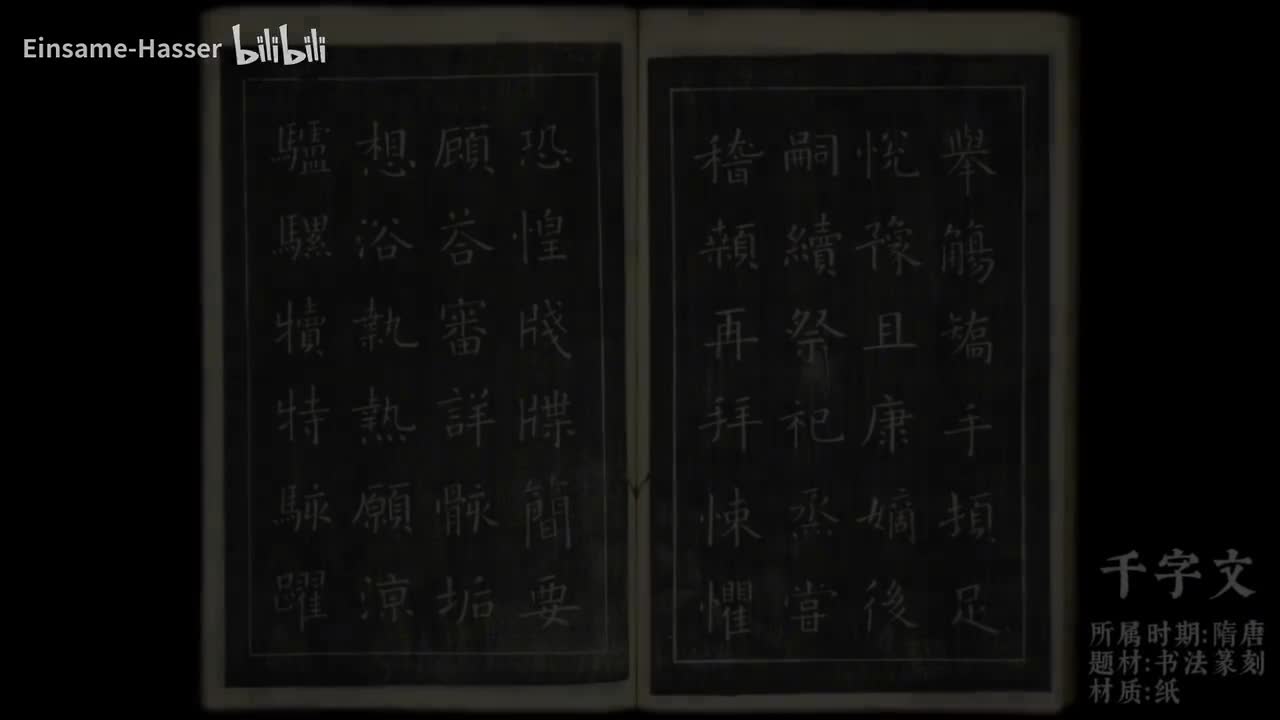 Einsame-Hasser bilibili
舉觴矯手頓足
悅豫且康嫡後
嗣續祭祀烝嘗
稽顙再拜悚懼
恐惶牋牒簡要
顧答審詳骸垢
想浴執熱願涼
驢騾犢特駭躍
千字文
所属时期:隋唐
题材:书法篆刻
材质:纸